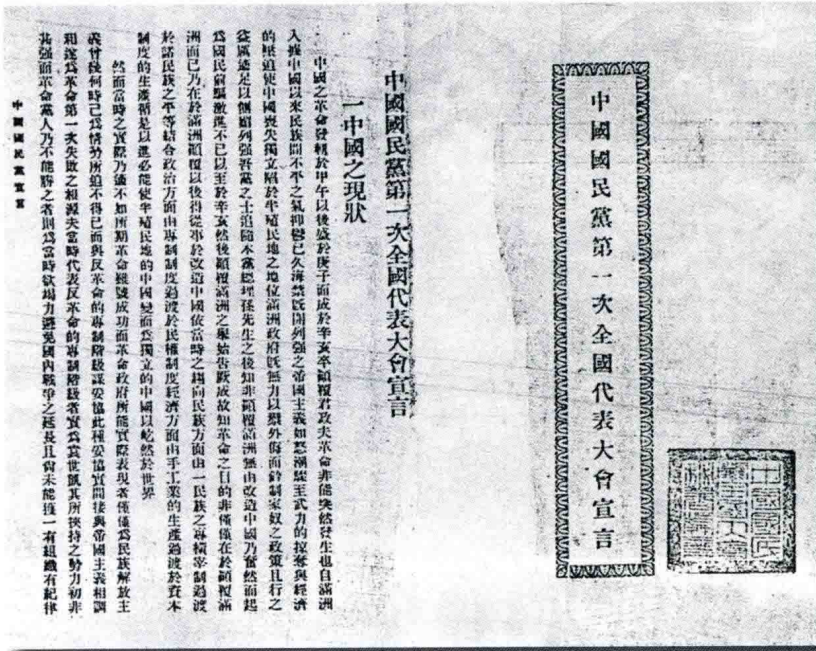 中國國民黨第一次全國代表大會宣言
中國國民黨第一次全國代表大會宣言
一中國之現狀
中國之革命發軔於甲午以後盛於庚子而成於辛亥卒顛覆君政夫革命非能突然發生也自滿洲
入據中國以來民族間不平之氣抑鬱已久海禁既開列强之帝國主義如怒潮驟至武力的掠奪與經濟
的壓迫使中國喪失獨立陷於半殖民地之地位滿洲政府既無力以禦外侮而鈐制家奴之政策且行之
益厲適足以側媚列强吾黨之士追隨本黨總理孫先生之後知非顛覆滿洲無由改造中國乃奮然而起
爲國民前驅激進不已以至於辛亥然後顛覆滿洲之舉始告厥成故知革命之目的非僅僅在於顛覆滿
洲而已乃在於滿洲顛覆以後得從事於改造中國依當時之趨向民族方面由一民族之專橫宰制過渡
於諸民族之平等結合政治方面由專制制度過渡於民權制度經濟方面由手工業的生產過渡於資本
制度的生產循是以進必能使半殖民地的中國變而爲獨立的中國以屹然於世界
然而當時之實際乃適不如所期革命雖號成功而革命政府所能實際表現者僅僅爲民族解放主
義曾幾何時已爲情勢所迫不得已而與反革命的專制階級謀妥協此種妥協實間接與帝國主義相調
和遂爲革命第一次失敗之根源夫當時代表反革命的專制階級者實爲袁世凱其所挾持之勢力初非
甚强而革命黨人乃不能勝之者則爲當時欲竭力避免國內戰爭之延長且尙未能獲一有組織有紀律
中國國民黨宣言